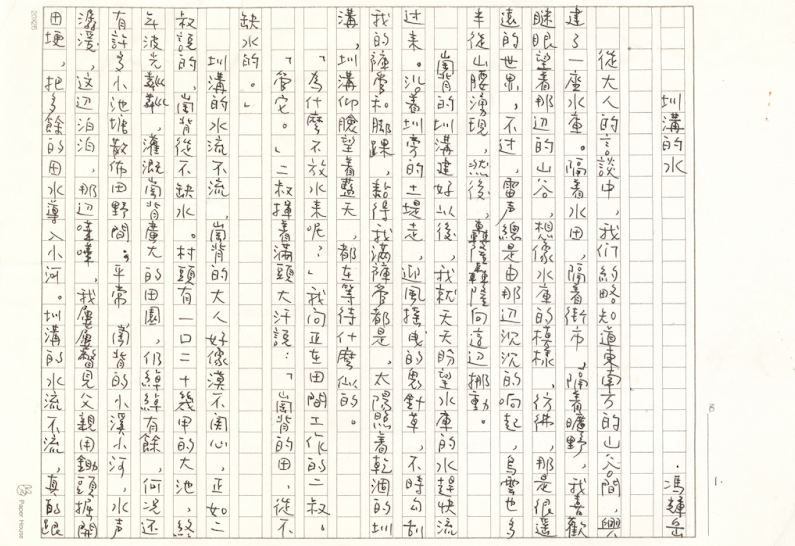 圳溝的水
·馮輝岳
從大人的言談中，我們約略知道東南方的山谷間，興
建了一座水庫。隔着水田，隔着街市，隔着曠野，我喜歡
瞇眼望着那辺的山谷，想像水庫的模樣，彷彿，那是很遙
遠的世界，不过，雷声總是由那辺沉沉的响起，烏雲也多
半從山腰湧現，然後，轟隆轟隆向這辺挪動。
崗背的圳溝建好以後，我就天天盼望水庫的水趕快流
过来。沿着圳旁的土堤走，迎風搖曳的鬼針草，不時勾刮
我的褲管和脚踝，黏得我滿褲管都是，太陽照着乾涸的圳
溝，圳溝仰臉望着藍天，都在等待什麼似的。
「為什麼不放水来呢？」我问正在田間工作的二叔。
「管它。」二叔揮着滿頭大汗說：「崗背的田，從不
缺水的。」
圳溝的水流不流，崗背的大人好像漠不関心，正如二
叔說的，崗背從不缺水。村頭有一口二十幾甲的大池，終
年波光粼粼，灌溉崗背廣大的田園，仍綽綽有餘，何況还
有許多小池塘散佈田野間；平常，崗背的小溪小河，水声
潺潺，这辺泊泊，那辺嘩嘩，我屢屢瞥見父親用鋤頭掘開
田埂，把多餘的田水導入小河。圳溝的水流不流，真的跟
Paper House